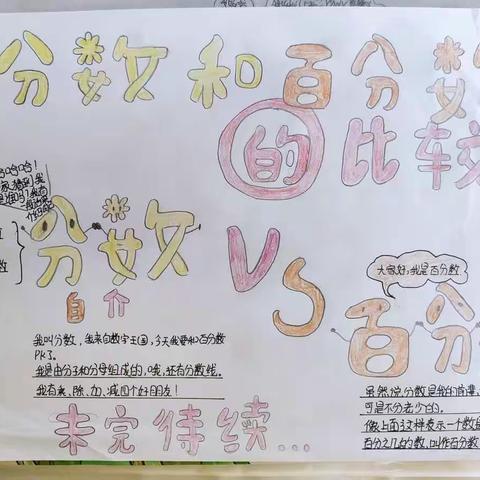 分数和百分数
的比较
哈哈哈!
分数
自介
VS
大家好,我是百分数
百分
我叫分数,我来自数字王国,今天我要和百分数
PK了。
我是由分子和分母组成的,哦,还有分数线。
我有乘、除、加、减四个好朋友!
虽然说,分数是我的前辈,
可是不分老少的。
像上面这样表示一个数是
百分之几的数,叫作百分数
未完待续...